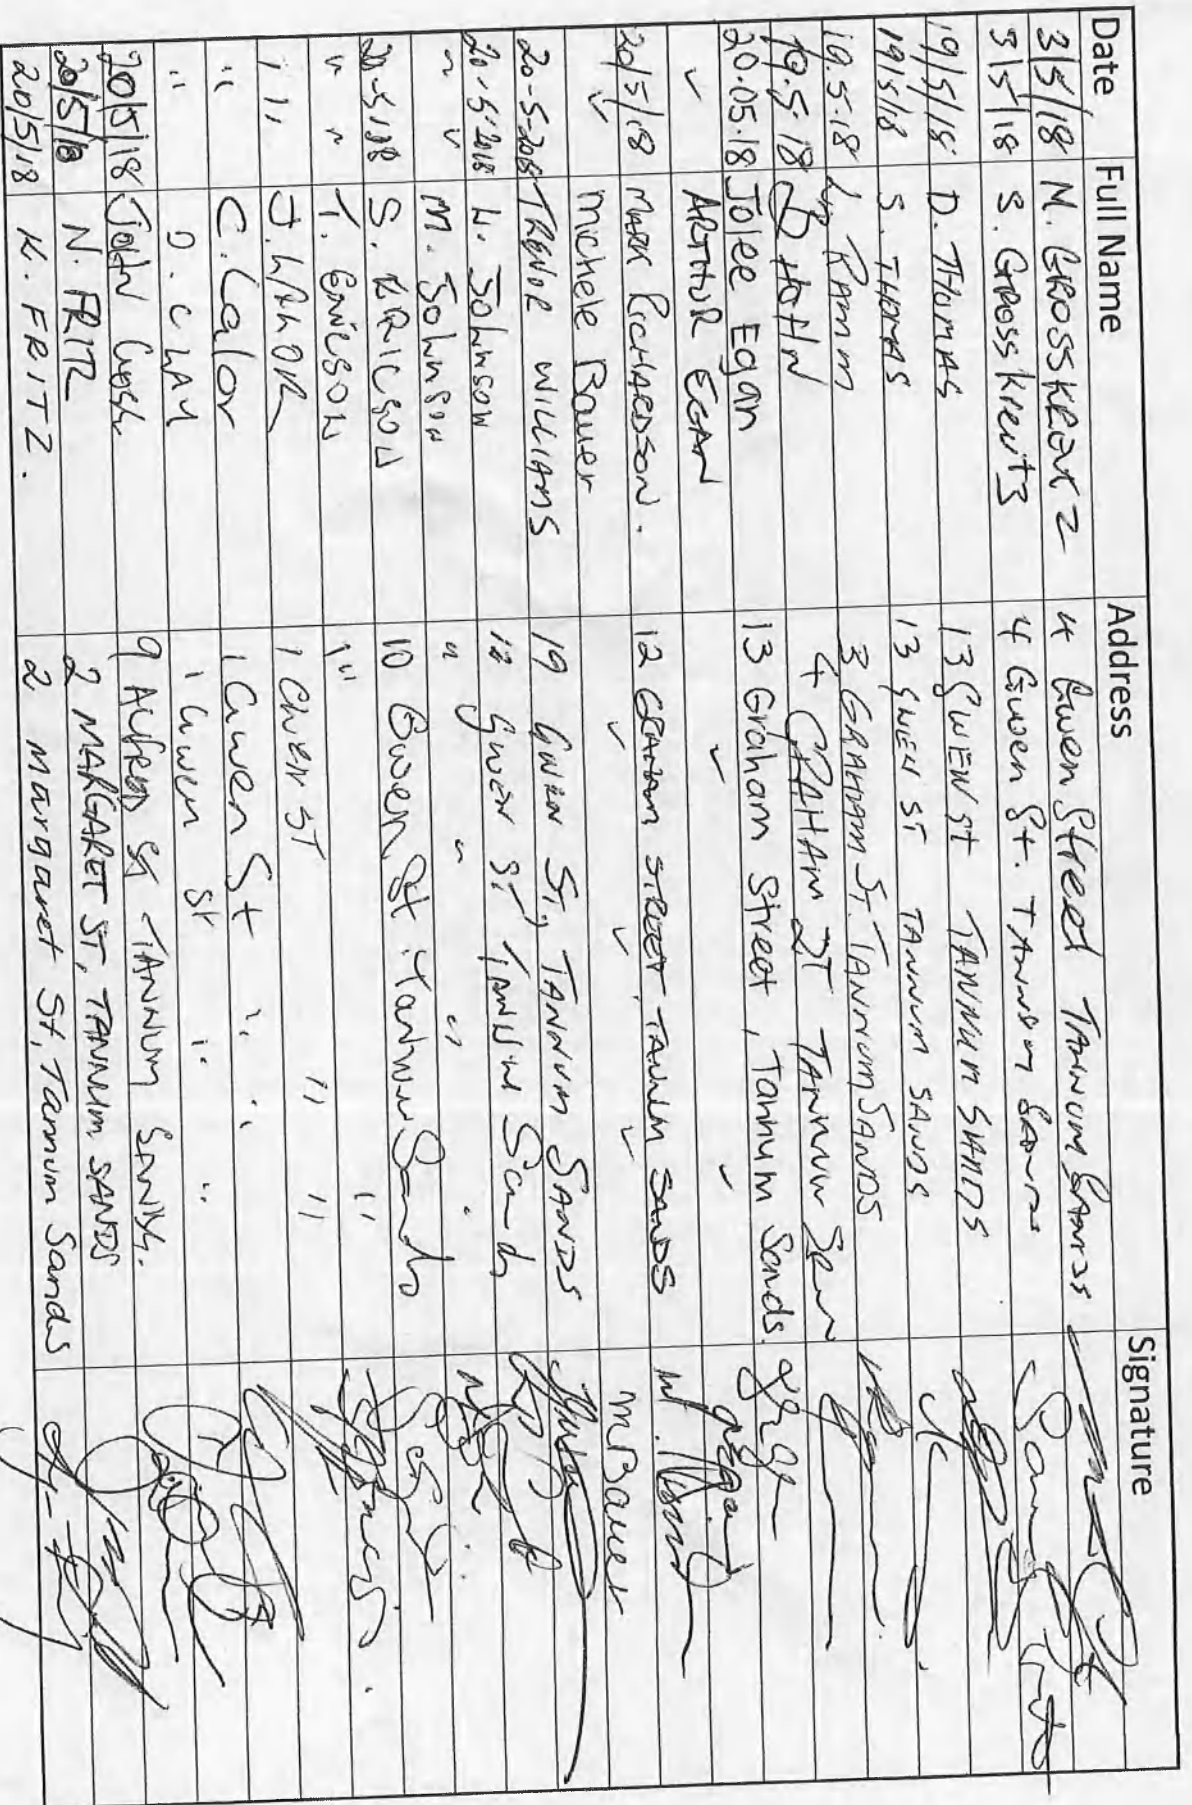 Date Full Name Address Signature
3/5/18 M. GROSSKREUTZ 4 Gwen Street TANNUM SANDS
3/5/18 S. Grosskreutz 4 Gwen St. TANNUM SANDS
19/5/18 D. THOMAS 13 GWEN St TANNUM SANDS
19/5/18 S. THOMAS 13 GWEN ST TANNUM SANDS
19.5.18 Ramm 3 GRAHAM ST. TANNUM SANDS
19.5.18 D HOHN 4 GRAHAM ST TANNUM
20.05.18 Jolee Egan 13 Graham Street, Tannum Sands.
✓ ARTHUR EGAN ✓ ✓
20/5/18 MARK RICHARDSON. 12 GRAHAM STREET, TANNUM SANDS
✓ Michele Bauer ✓ ✓ ✓ M Bauer
20-5-2018 TREVOR WILLIAMS 19 GWEN ST, TANNUM SANDS
20-5-2018 W. JOHNSON 12 Gwen ST TANNUM Sands
" " M. JOHNSON " " " "
20-5-18 S. ERICSON 10 Gwen St. Tannum Sands
" " T. ERICSON " " "
" " J. LALOR 1 GWEN ST " "
" C. Lalor 1 Gwen St " "
" D. CLAY 1 Gwen St " "
20/5/18 John 9 ALFRED ST TANNUM SANDS.
20/5/18 N. FRITZ 2 MARGARET ST, TANNUM SANDS
20/5/18 K. FRITZ. 2 Margaret St, Tannum Sands